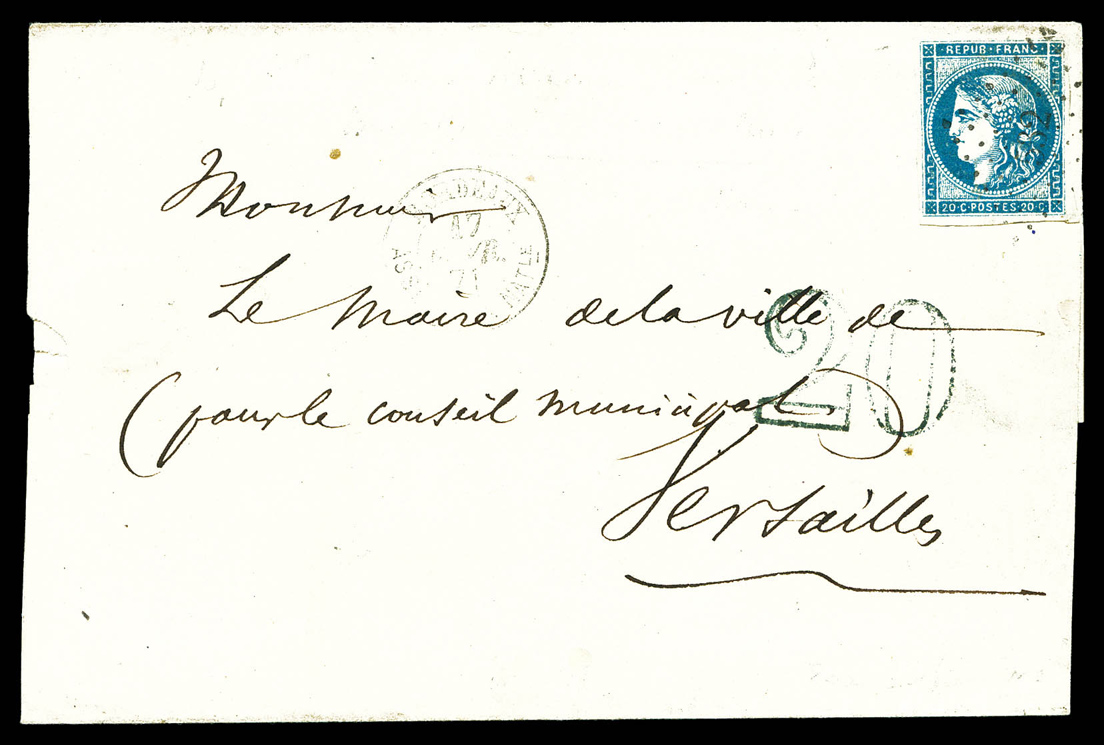 REPUB·FRANC·
20·C·POSTES·20·C
Monsieur
BORDEAUX
17
71
Le Maire de la ville de
20
(pour le conseil municipal)
Versailles